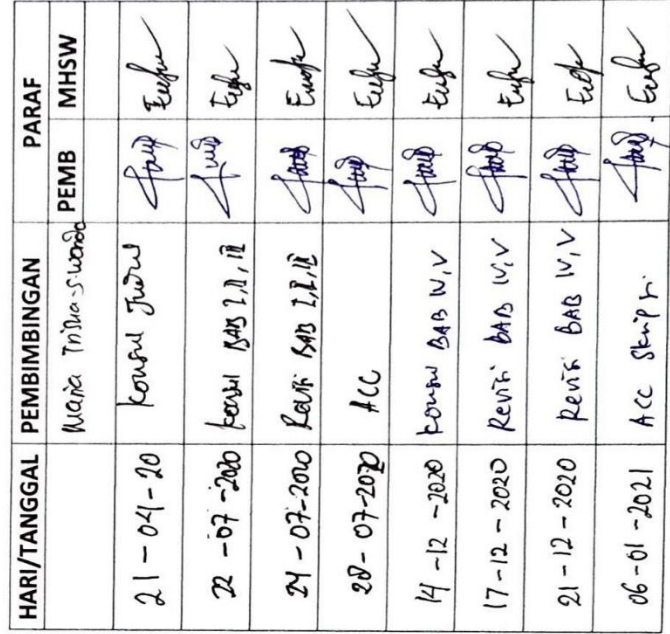 HARI/TANGGAL PEMBIMBINGAN PARAF
PEMB MHSW
Maria Trisna S. Wonda
21-04-20 Konsul Judul
22-07-2020 Konsul BAB I, II, III
24-07-2020 Revisi BAB I, II, III
28-07-2020 ACC
14-12-2020 Konsul BAB IV, V
17-12-2020 Revisi BAB IV, V
21-12-2020 Revisi BAB IV, V
06-01-2021 ACC Skripsi